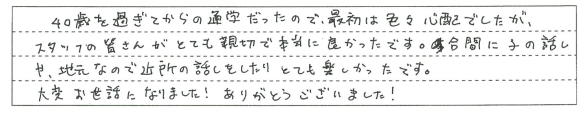 40歳を過ぎてからの通学だったので、最初は色々心配でしたが、
スタッフの皆さんがとても親切で本当に良かったです。合間に子の話し
や、地元なので近所の話しをしたりとても楽しかったです。
大変お世話になりました！ありがとうございました！